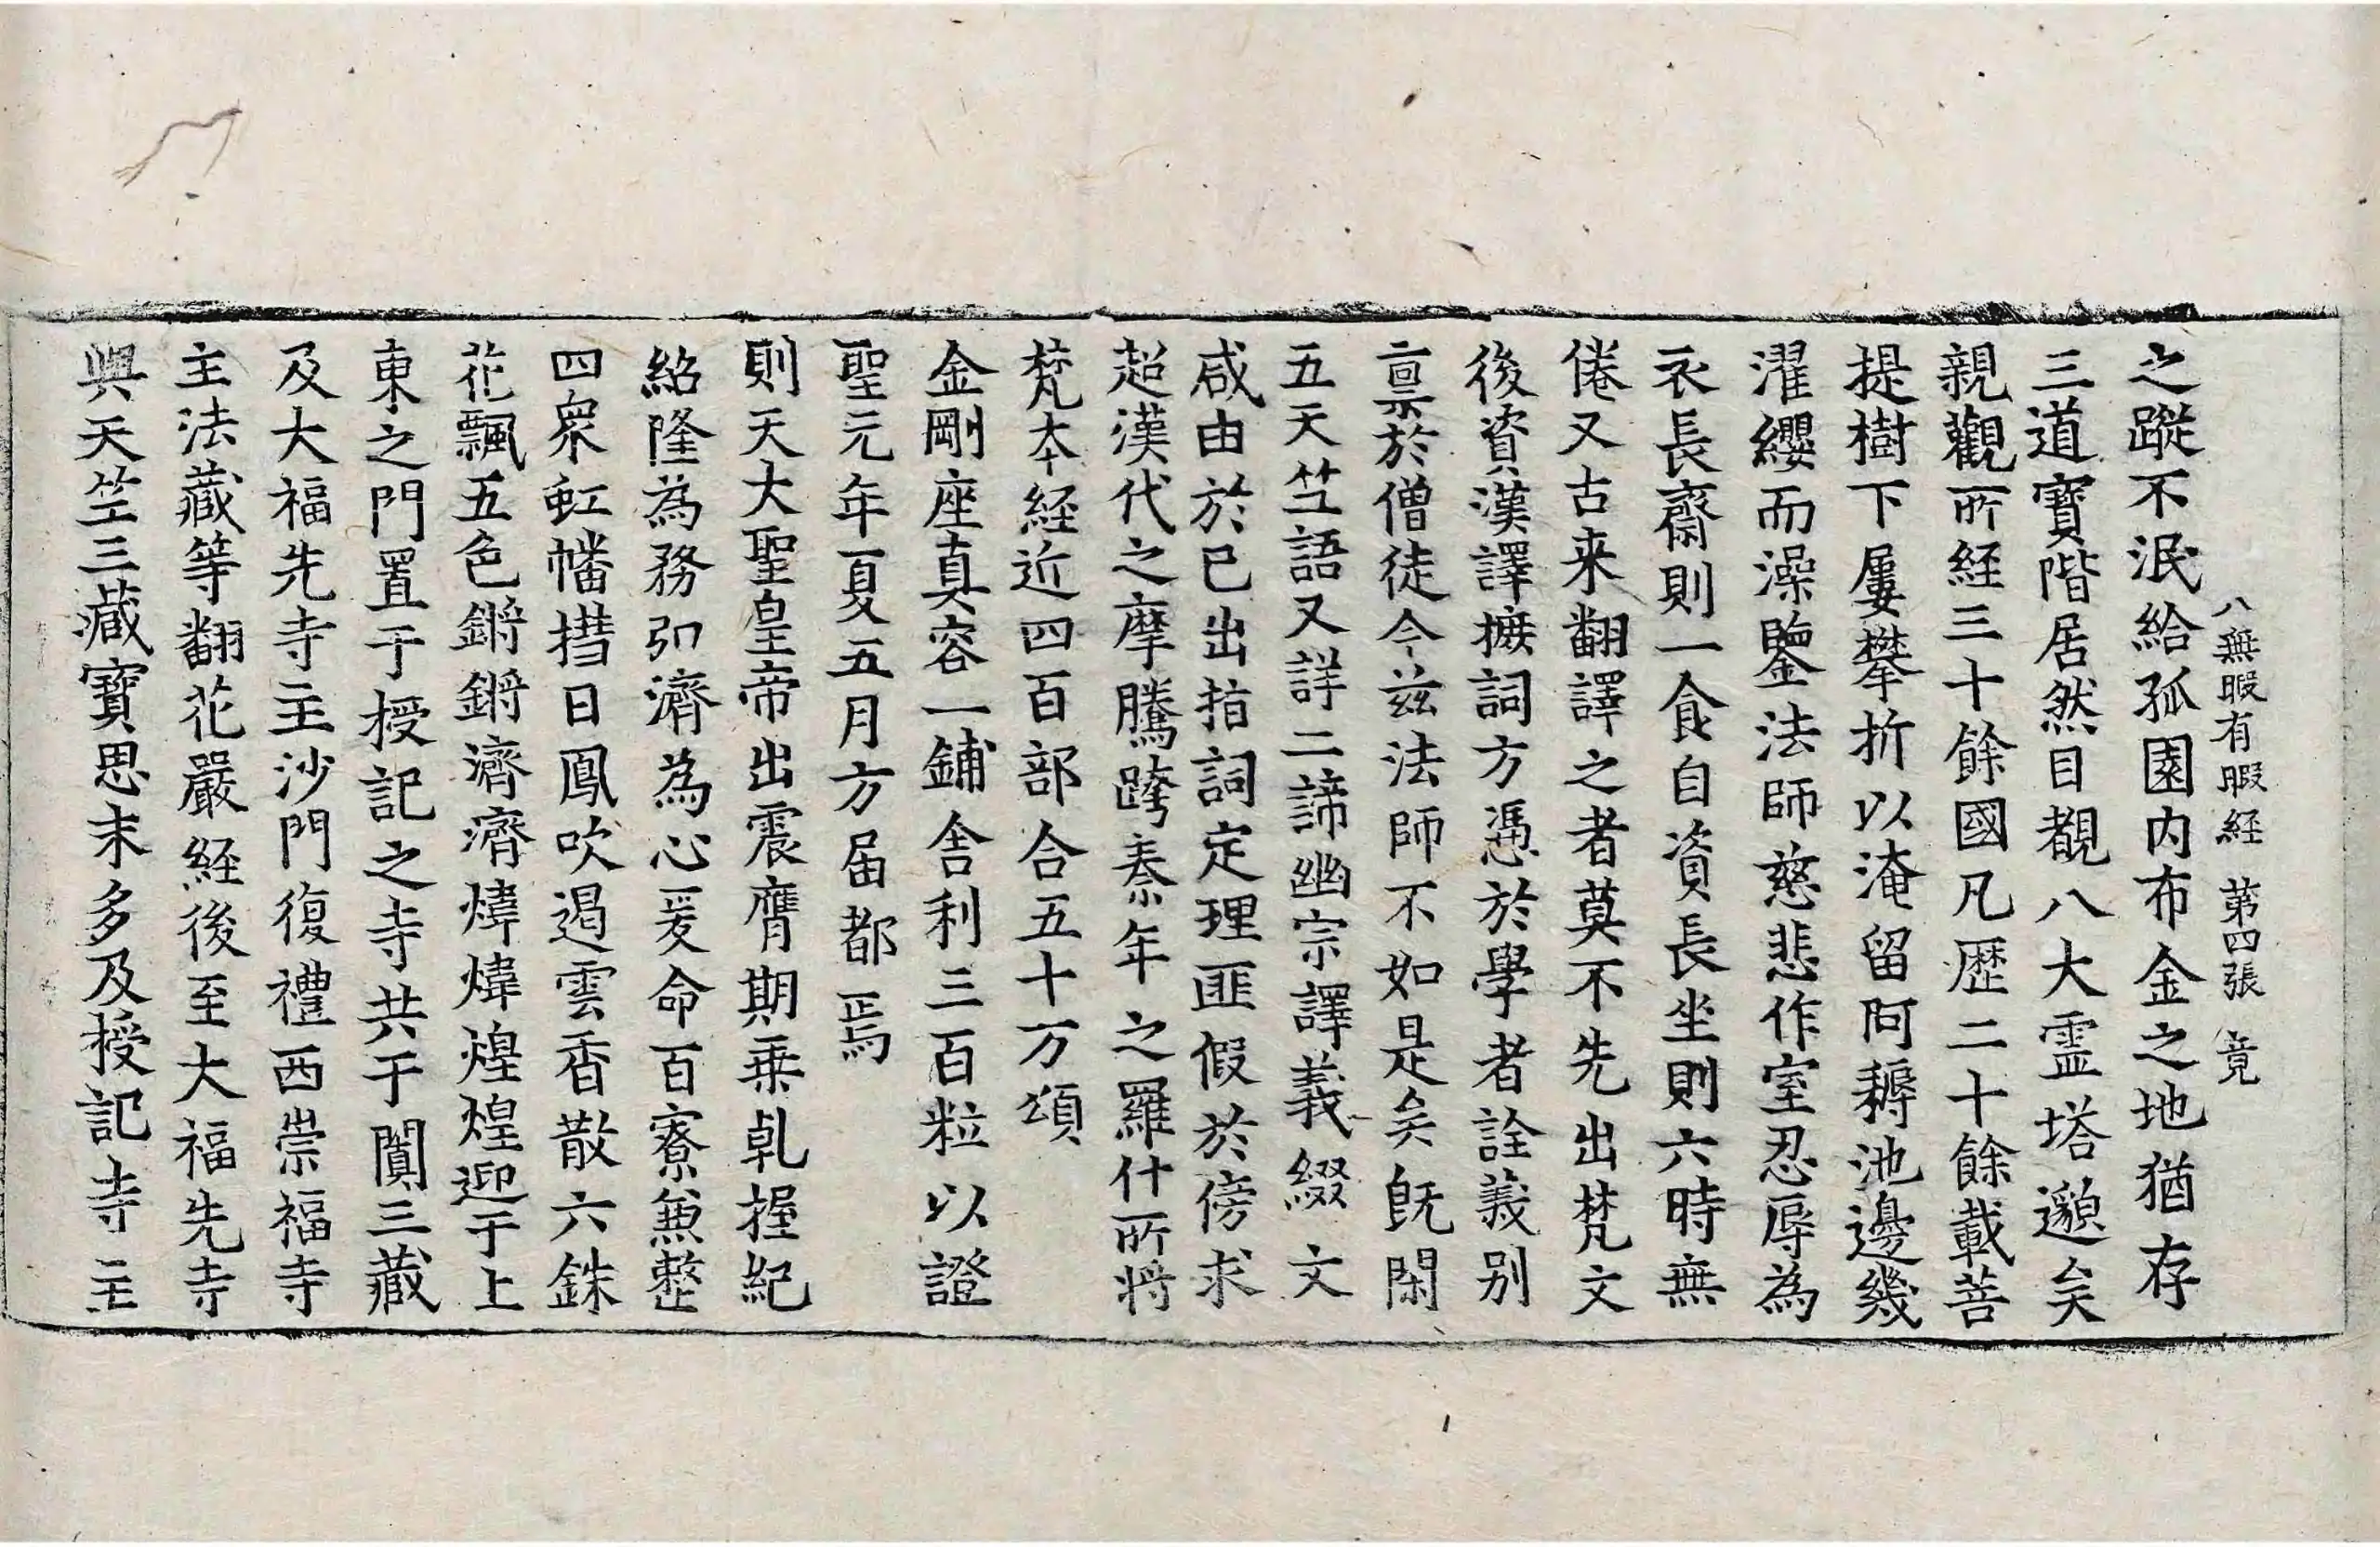 八無暇有暇経 第四張 竟
之蹤不泯給孤園内布金之地猶存
三道寶階居然目覩八大霊塔邈矣
親觀所経三十餘國凡歷二十餘載菩
提樹下屢攀折以淹留阿耨池邊幾
濯纓而澡鑒法師慈悲作室忍辱為
衣長齋則一食自資長坐則六時無
倦又古来翻譯之者莫不先出梵文
後資漢譯摭詞方憑於學者詮義别
禀於僧徒今茲法師不如是矣既閑
五天竺語又詳二諦幽宗譯義綴文
咸由於已出指詞定理匪假於傍求
超漢代之摩騰跨秦年之羅什所将
梵本経近四百部合五十万頌
金剛座真容一鋪舍利三百粒以證
聖元年夏五月方届都焉
則天大聖皇帝出震膺期乗乹握紀
紹隆為務弘濟為心爰命百寮兼整
四衆虹幡掿日鳳吹遏雲香散六銖
花飄五色鏘鏘濟濟煒煒煌煌迎于上
東之門置于授記之寺共于闐三藏
及大福先寺主沙門復禮西崇福寺
主法藏等翻花嚴経後至大福先寺
與天竺三藏寶思末多及授記寺主